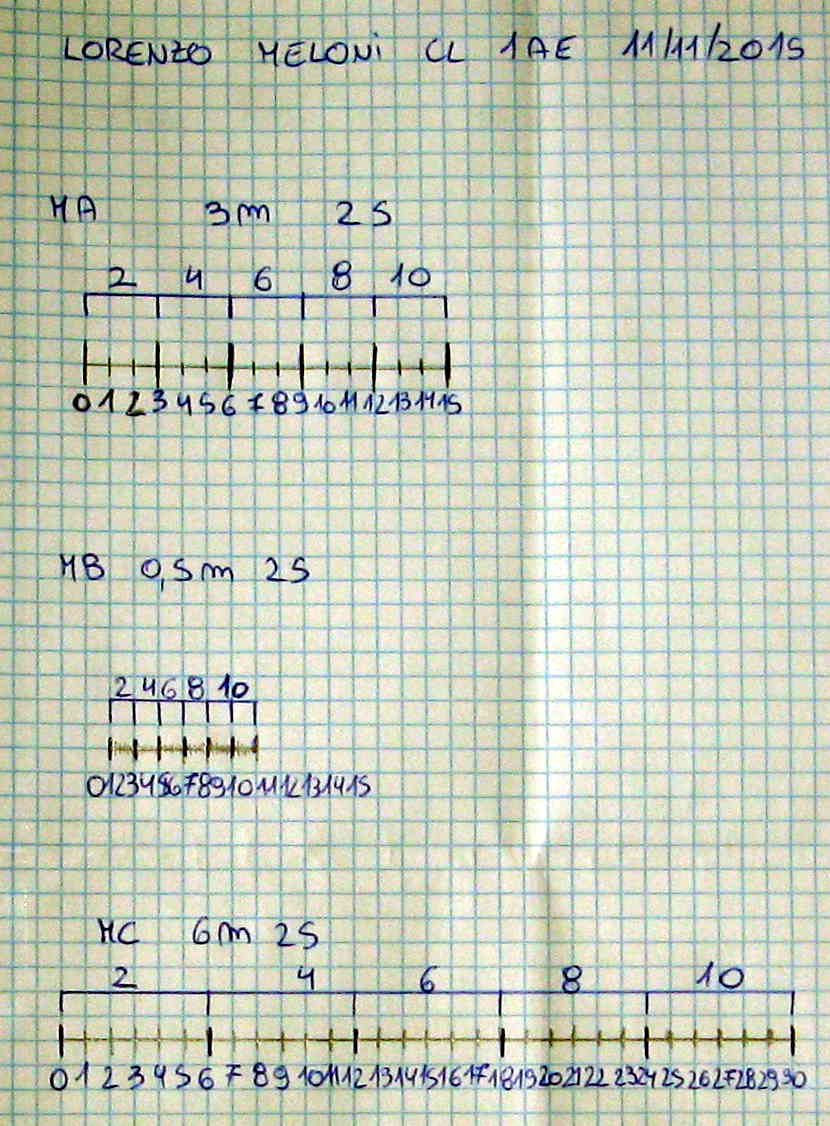 LORENZO MELONI CL 1AE 11/11/2015
MA 3m 2S
2 4 6 8 10
0 1 2 3 4 5 6 7 8 9 10 11 12 13 14 15
MB 0,5m 2S
2 4 6 8 10
0 1 2 3 4 5 6 7 8 9 10 11 12 13 14 15
MC 6m 2S
2 4 6 8 10
0 1 2 3 4 5 6 7 8 9 10 11 12 13 14 15 16 17 18 19 20 21 22 23 24 25 26 27 28 29 30